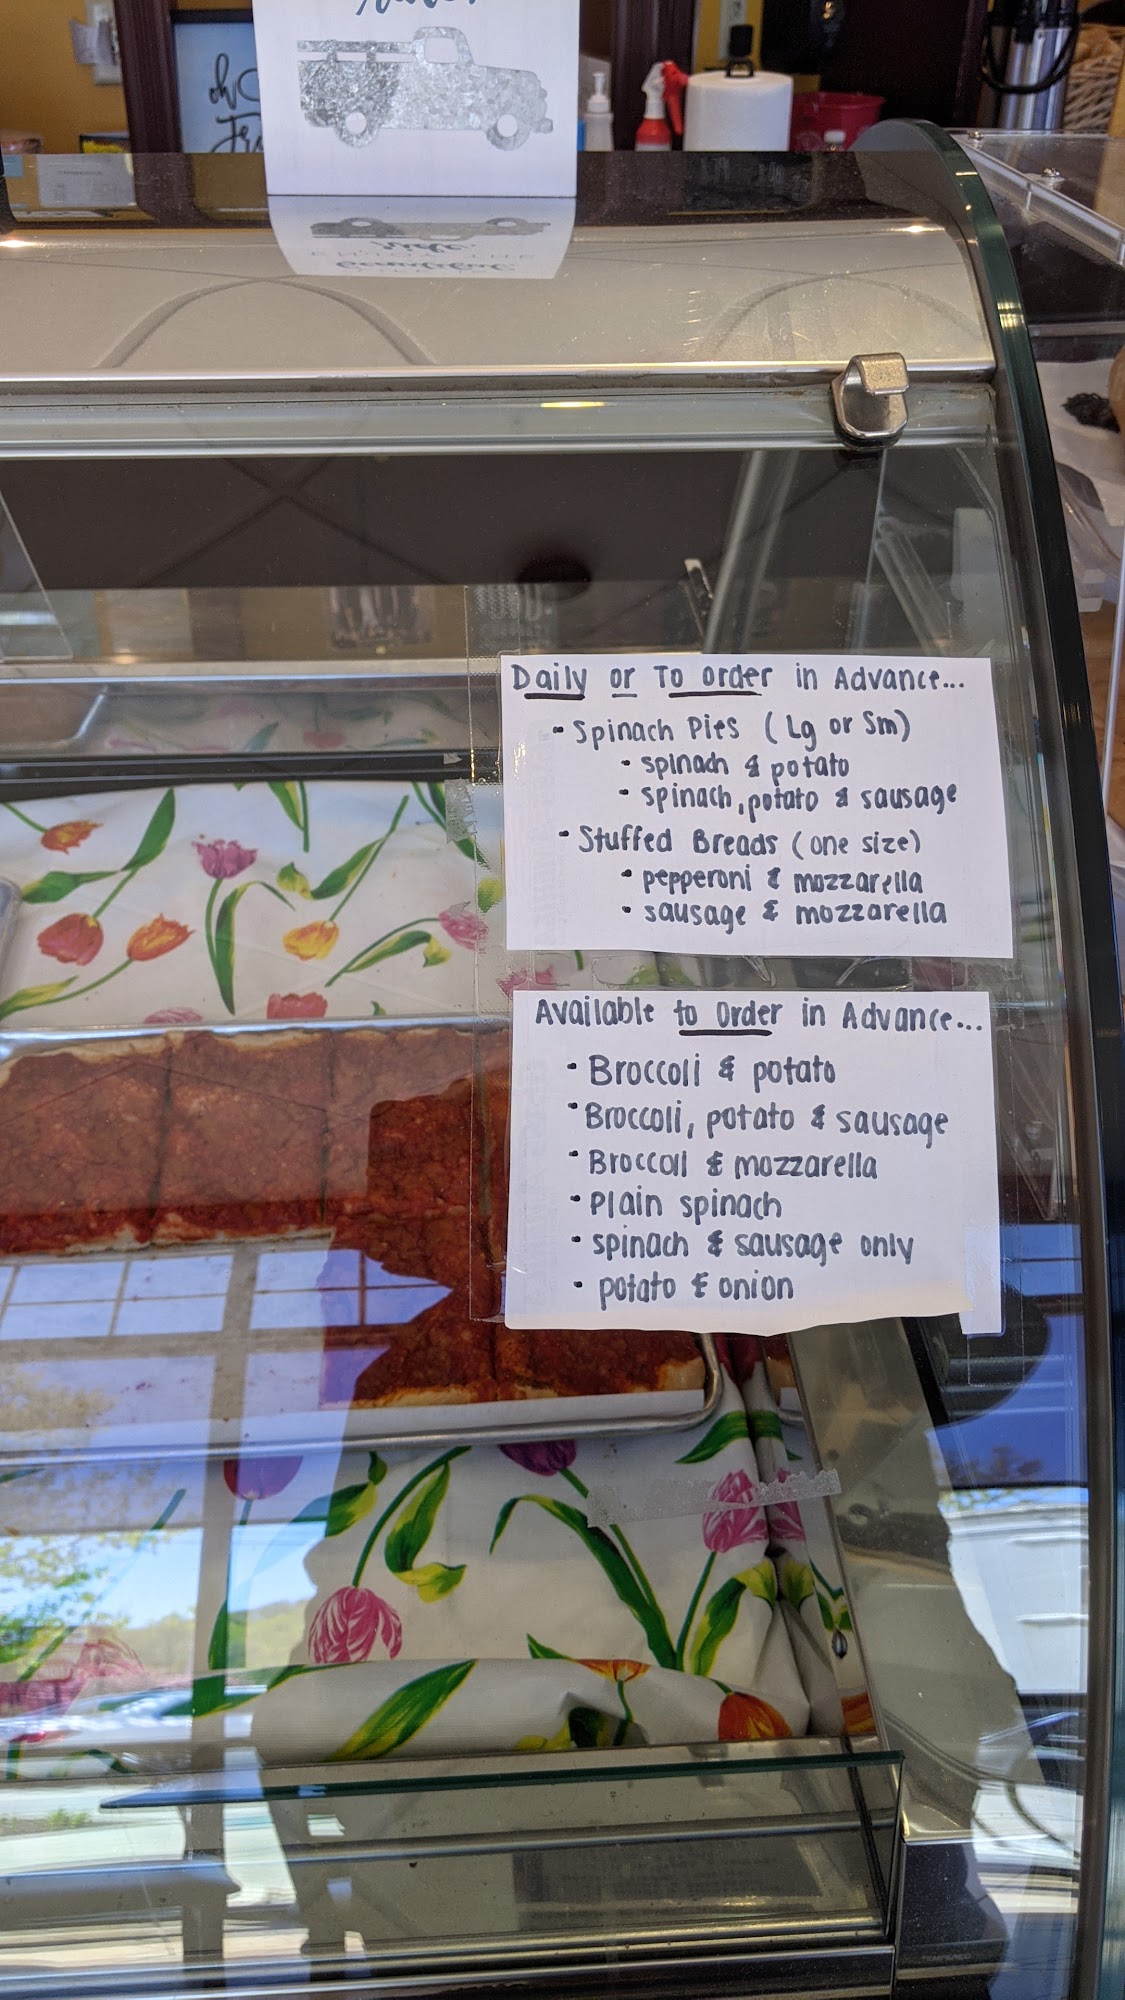 oh
Daily or To Order in Advance...
• Spinach Pies (Lg or Sm)
• spinach & potato
• spinach, potato & sausage
• Stuffed Breads (one size)
• pepperoni & mozzarella
• sausage & mozzarella
Available to Order in Advance...
• Broccoli & potato
• Broccoli, potato & sausage
• Broccoli & mozzarella
• Plain spinach
• spinach & sausage only
• potato & onion
TEMPERED